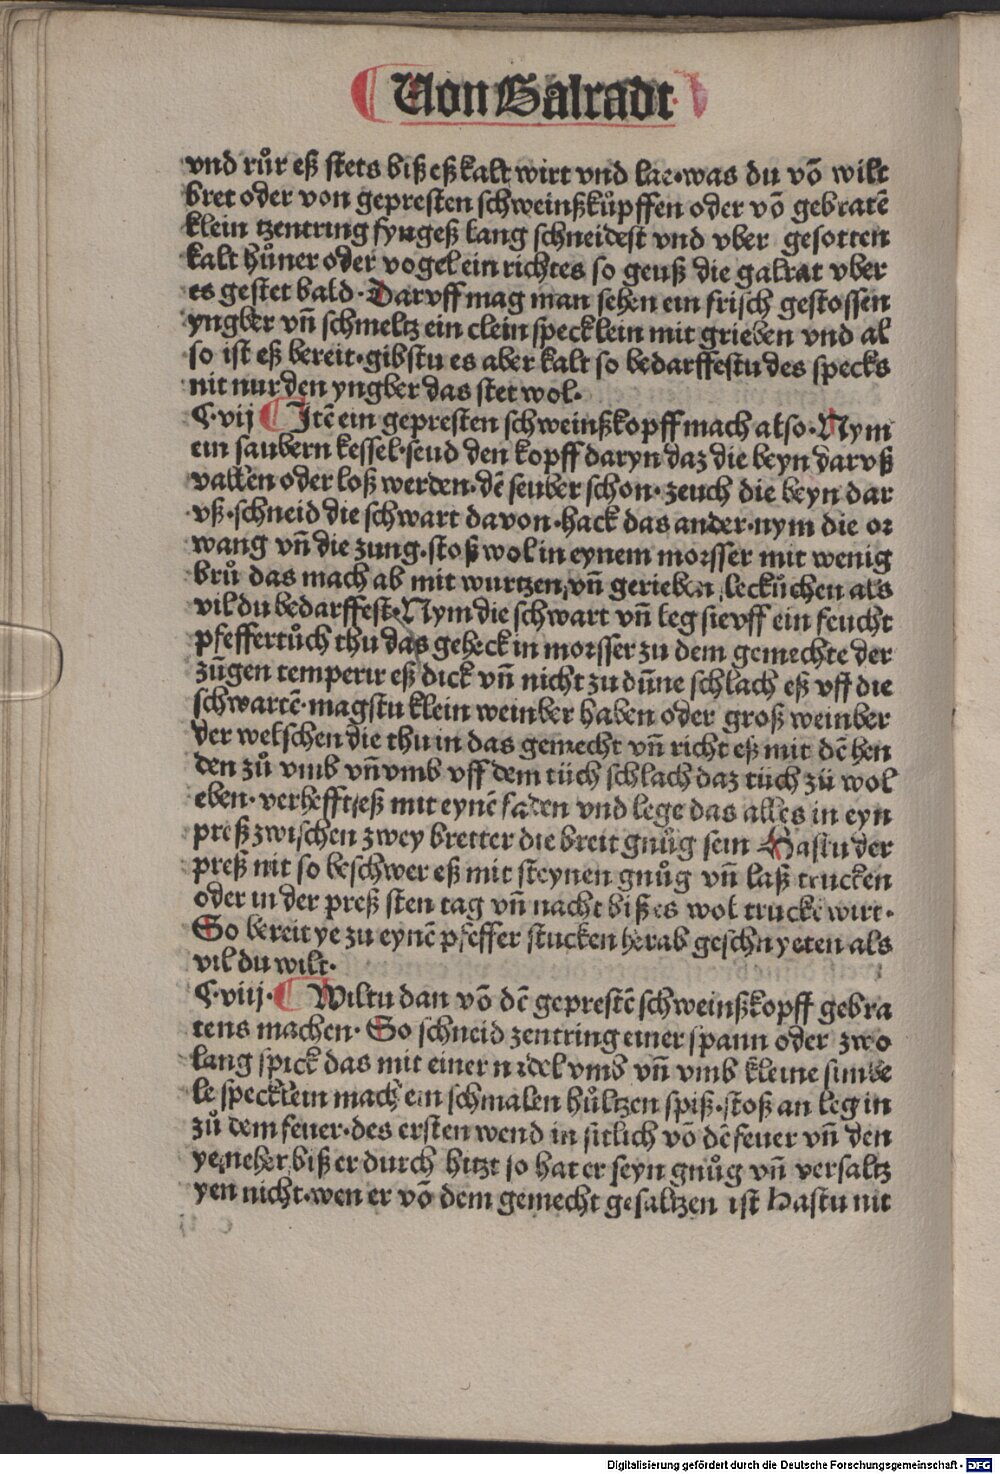 Von Galradt
vnd růr eß stets biß eß kalt wirt vnd lae·was du võ wilt
bret oder von gepresten schweinßkůpffen oder võ gebratẽ
klein tzentring fyngeß lang schneidest vnd vber gesotten
kalt hůner oder vogel ein richtes so geuß die galrat vber
es gestet bald· Daruff mag man sehen ein frisch gestossen
yngber vñ schmeltz ein clein specklein mit grieben vnd al
so ist eß bereit·gibstu es aber kalt so bedarffestu des specks
nit nur den yngber das stet wol·
C·vij Itẽ ein gepresten schweinßkopff mach also·Nym
ein saubern kessel·seud den kopff daryn daz die beyn daruß
vallen oder loß werden·dẽ seuber schon·zeuch die beyn dar
vß·schneid die schwart davon·hack das ander·nym die or
wang vñ die zung·stoß wol in eynem morsser mit wenig
brů das mach ab mit wurtzen,vñ gerieben leckůchen als
vil du bedarffest·Nym die schwart vñ leg sie vff ein feucht
pfeffertůch thu das geheck in morsser zu dem gemechte der
zũgen temperir eß dick vñ nicht zu dũne schlach eß vff die
schwartẽ·magstu klein weinber haben oder groß weinber
der welschen die thu in das gemecht vñ richt eß mit dẽ hen
den zů vmb vñ vmb vff dem tüch schlach daz tüch zü wol
eben·verhefft eß mit eynẽ faden vnd lege das alles in eyn
preß zwischen zwey bretter die breit gnůg sein Hastu der
preß nit so beschwer eß mit steynen gnůg vñ laß trucken
oder in der preß sten tag vñ nacht biß es wol truckẽ wirt·
So bereit ye zu eynẽ pfeffer stucken herab geschnyeten als
vil du wilt·
C·viij· Wiltu dan võ dẽ geprestẽ schweinßkopff gebra
tens machen· So schneid zentring einer spann oder zwo
lang spick das mit einer nadel vmb vñ vmb kleine sinbe
le specklein mach ein schmalen hůltzen spiß·stoß an leg in
zů dem feuer·des ersten wend in sitlich võ dẽ feuer vñ den
ye neher biß er durch hitzt so hat er seyn gnůg vñ versaltz
yen nicht·wen er võ dem gemecht gesaltzen ist Hastu nit
Digitalisierung gefördert durch die Deutsche Forschungsgemeinschaft - DFG